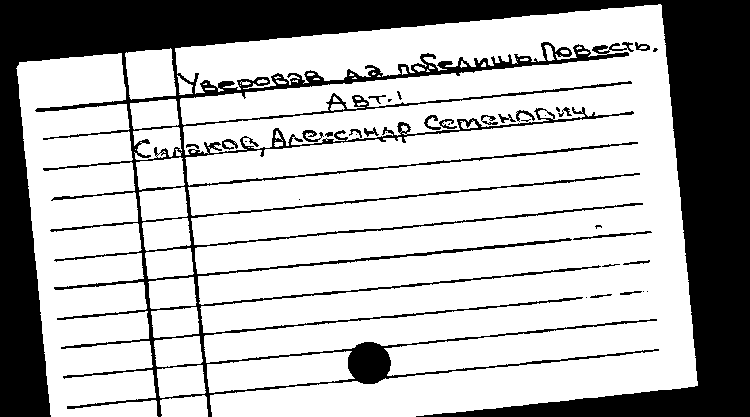 Уверовав да победишь. Повесть.
Авт.:
Силаков, Александр Семенович.